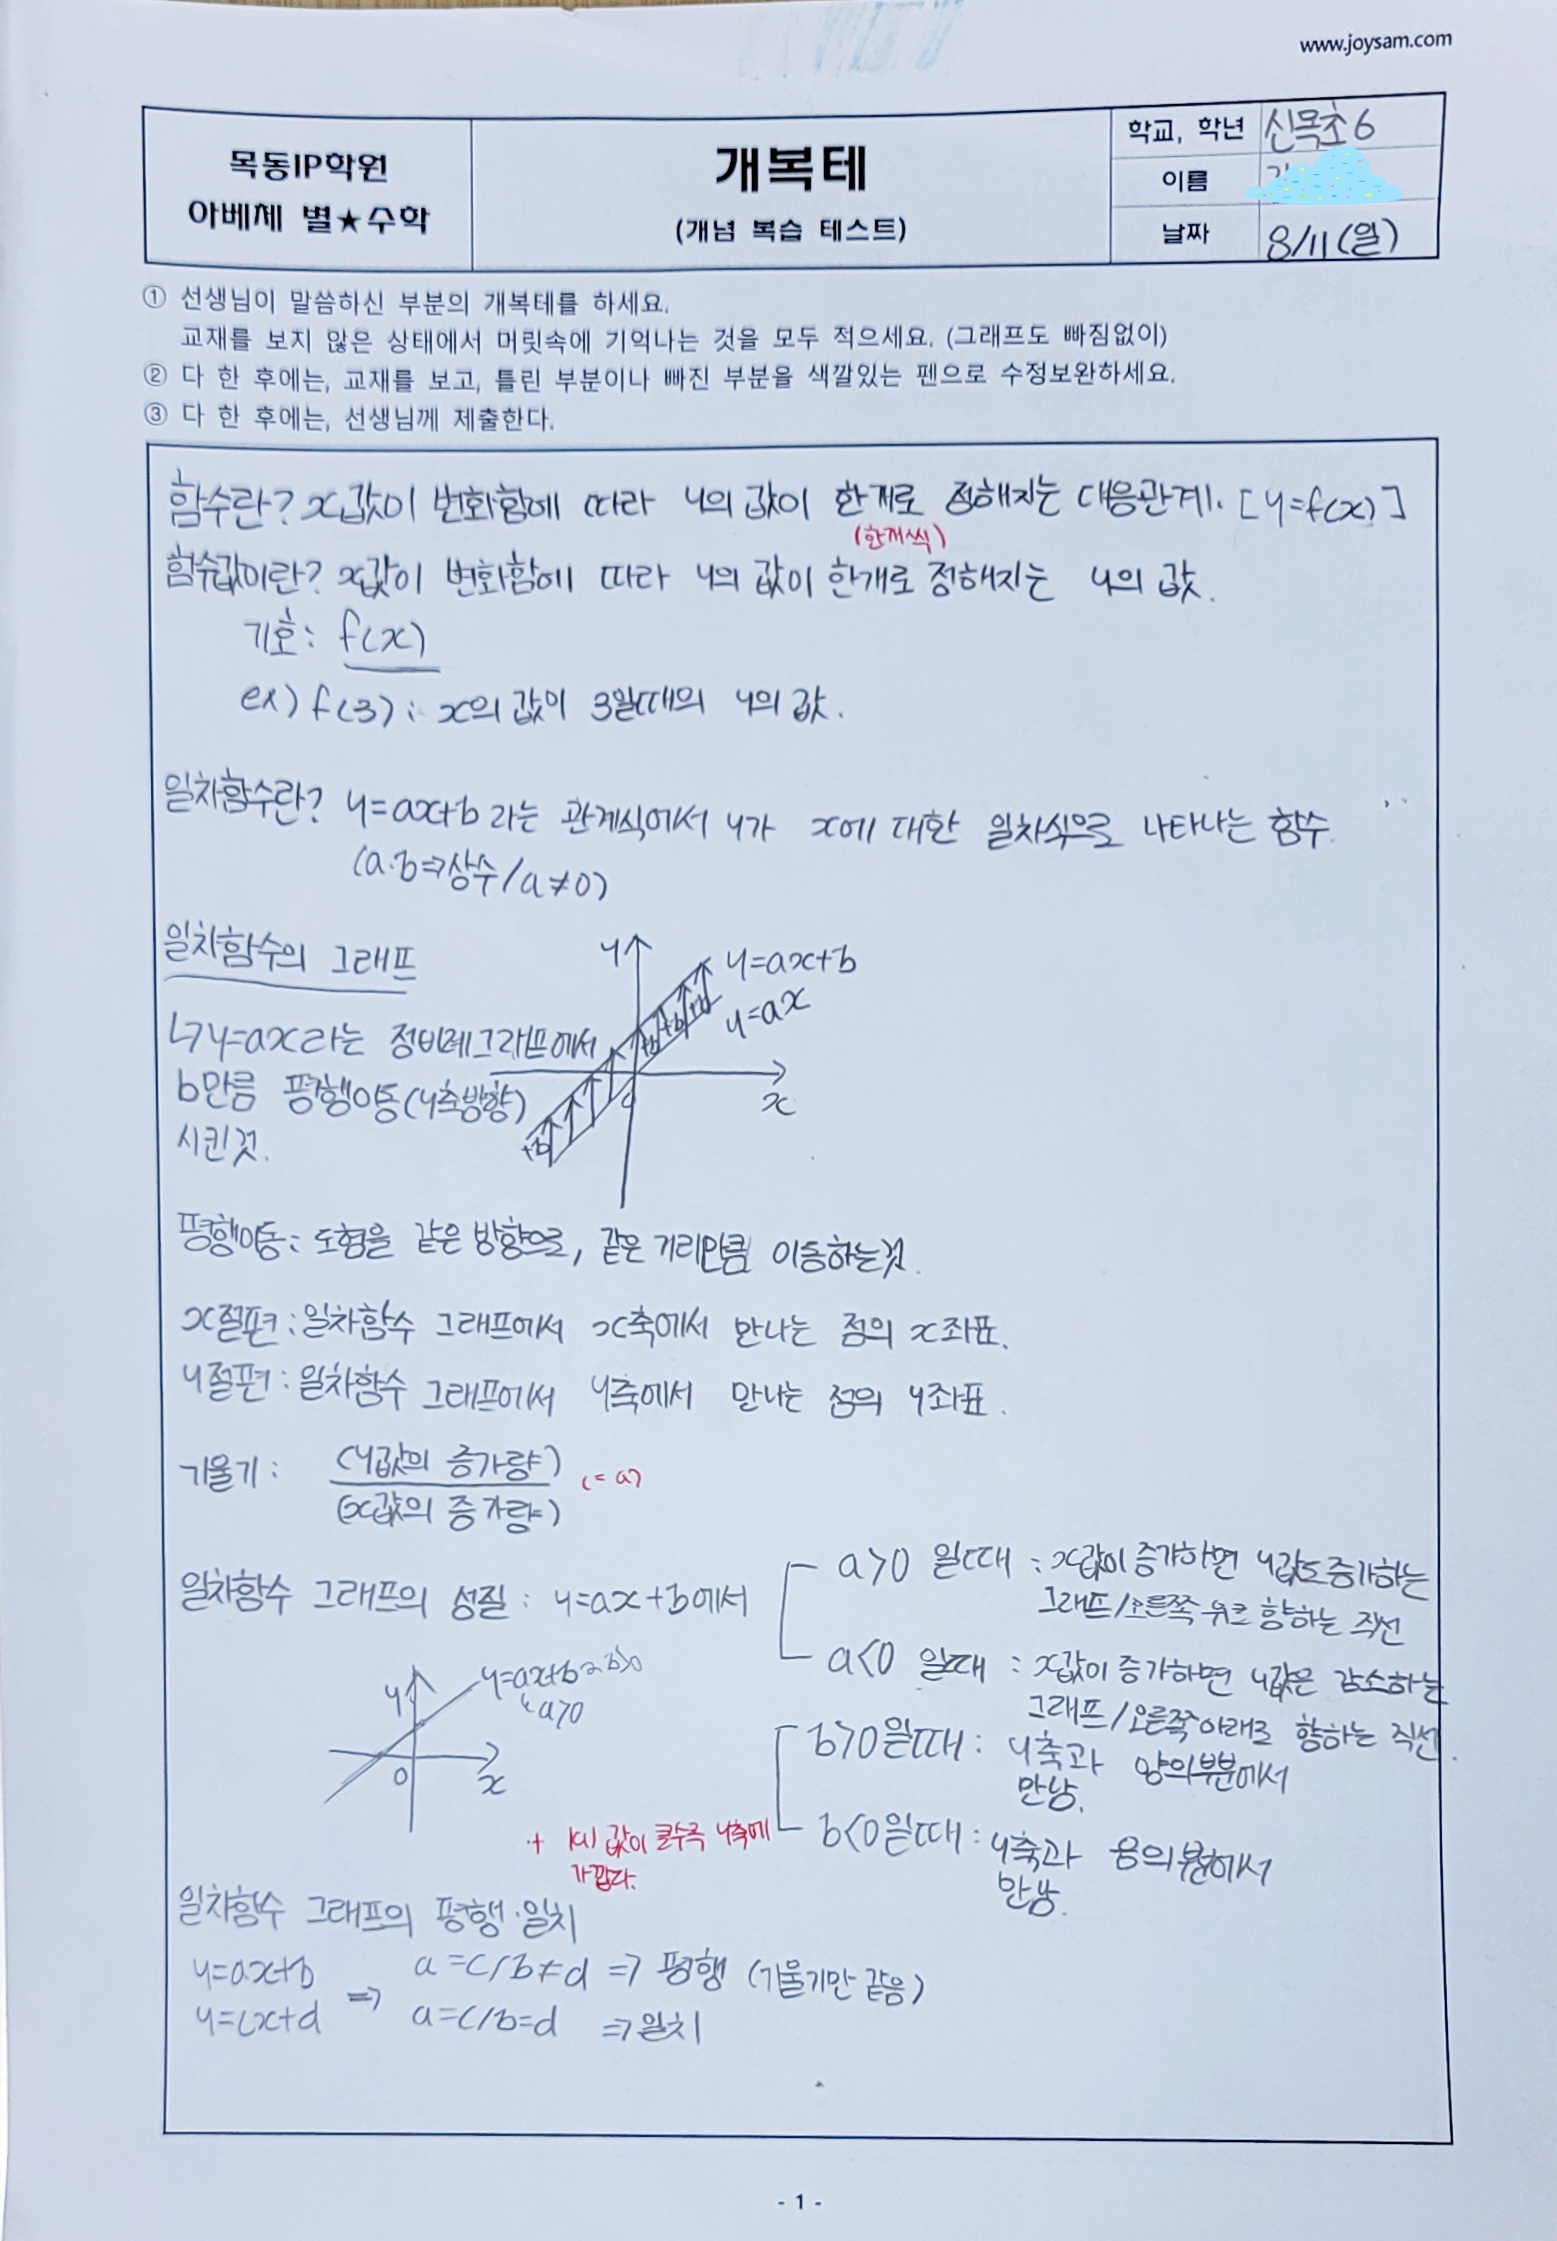 www.joysam.com
목동IP학원
아베체 별★수학
개복테
(개념 복습 테스트)
학교, 학년 신목초6
이름
날짜 8/11(일)
① 선생님이 말씀하신 부분의 개복테를 하세요.
교재를 보지 않은 상태에서 머릿속에 기억나는 것을 모두 적으세요. (그래프도 빠짐없이)
② 다 한 후에는, 교재를 보고, 틀린 부분이나 빠진 부분을 색깔있는 펜으로 수정보완하세요.
③ 다 한 후에는, 선생님께 제출한다.
함수란? x값이 변화함에 따라 y의 값이 한개로 정해지는 대응관계. [y=f(x)]
(한개씩)
함수값이란? x값이 변화함에 따라 y의 값이 한개로 정해지는 y의 값.
기호: f(x)
ex) f(3): x의 값이 3일때의 y의 값.
일차함수란? y=ax+b 라는 관계식에서 y가 x에 대한 일차식으로 나타나는 함수.
(a·b⇒상수/a≠0)
일차함수의 그래프
y
y=ax+b
y=ax
+b +b +b
↳y=ax라는 정비례그래프에서
b만큼 평행이동(y축방향)
시킨것.
0
x
+b
평행이동: 도형을 같은 방향으로, 같은 거리만큼 이동하는것.
x절편: 일차함수 그래프에서 x축에서 만나는 점의 x좌표.
y절편: 일차함수 그래프에서 y축에서 만나는 점의 y좌표.
기울기: (y값의 증가량)
(x값의 증가량)
(=a)
일차함수 그래프의 성질: y=ax+b에서
a>0 일때: x값이 증가하면 y값도 증가하는
그래프/오른쪽 위로 향하는 직선
a<0 일때: x값이 증가하면 y값은 감소하는
그래프/오른쪽아래로 향하는 직선.
b>0일때: y축과 양의부분에서
만남.
b<0일때: y축과 음의 부분에서
만남.
y
y=ax+b → b>0
↳a>0
0
x
+ |a| 값이 클수록 y축에
가깝다.
일차함수 그래프의 평행·일치
y=ax+b
y=cx+d
⇒
a=c/b≠d ⇒ 평행 (기울기만 같음)
a=c/b=d ⇒ 일치
- 1 -